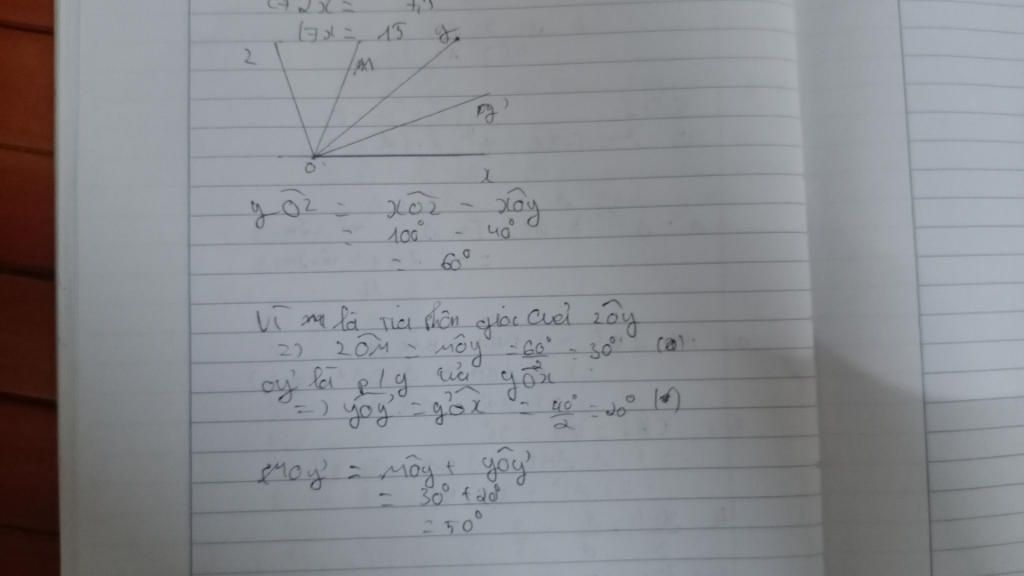 17x = 15
z
m
y
y'
O
x
yOz = xOz - xOy
= 100° - 40°
= 60°
Vì là tia phân giác của zOy
=> zOm = mOy = 60°/2 = 30°
oy' là p/g của yOx
=> yOy' = y'Ox = 40°/2 = 20°
mOy' = mOy + yOy'
= 30° + 20°
= 50°